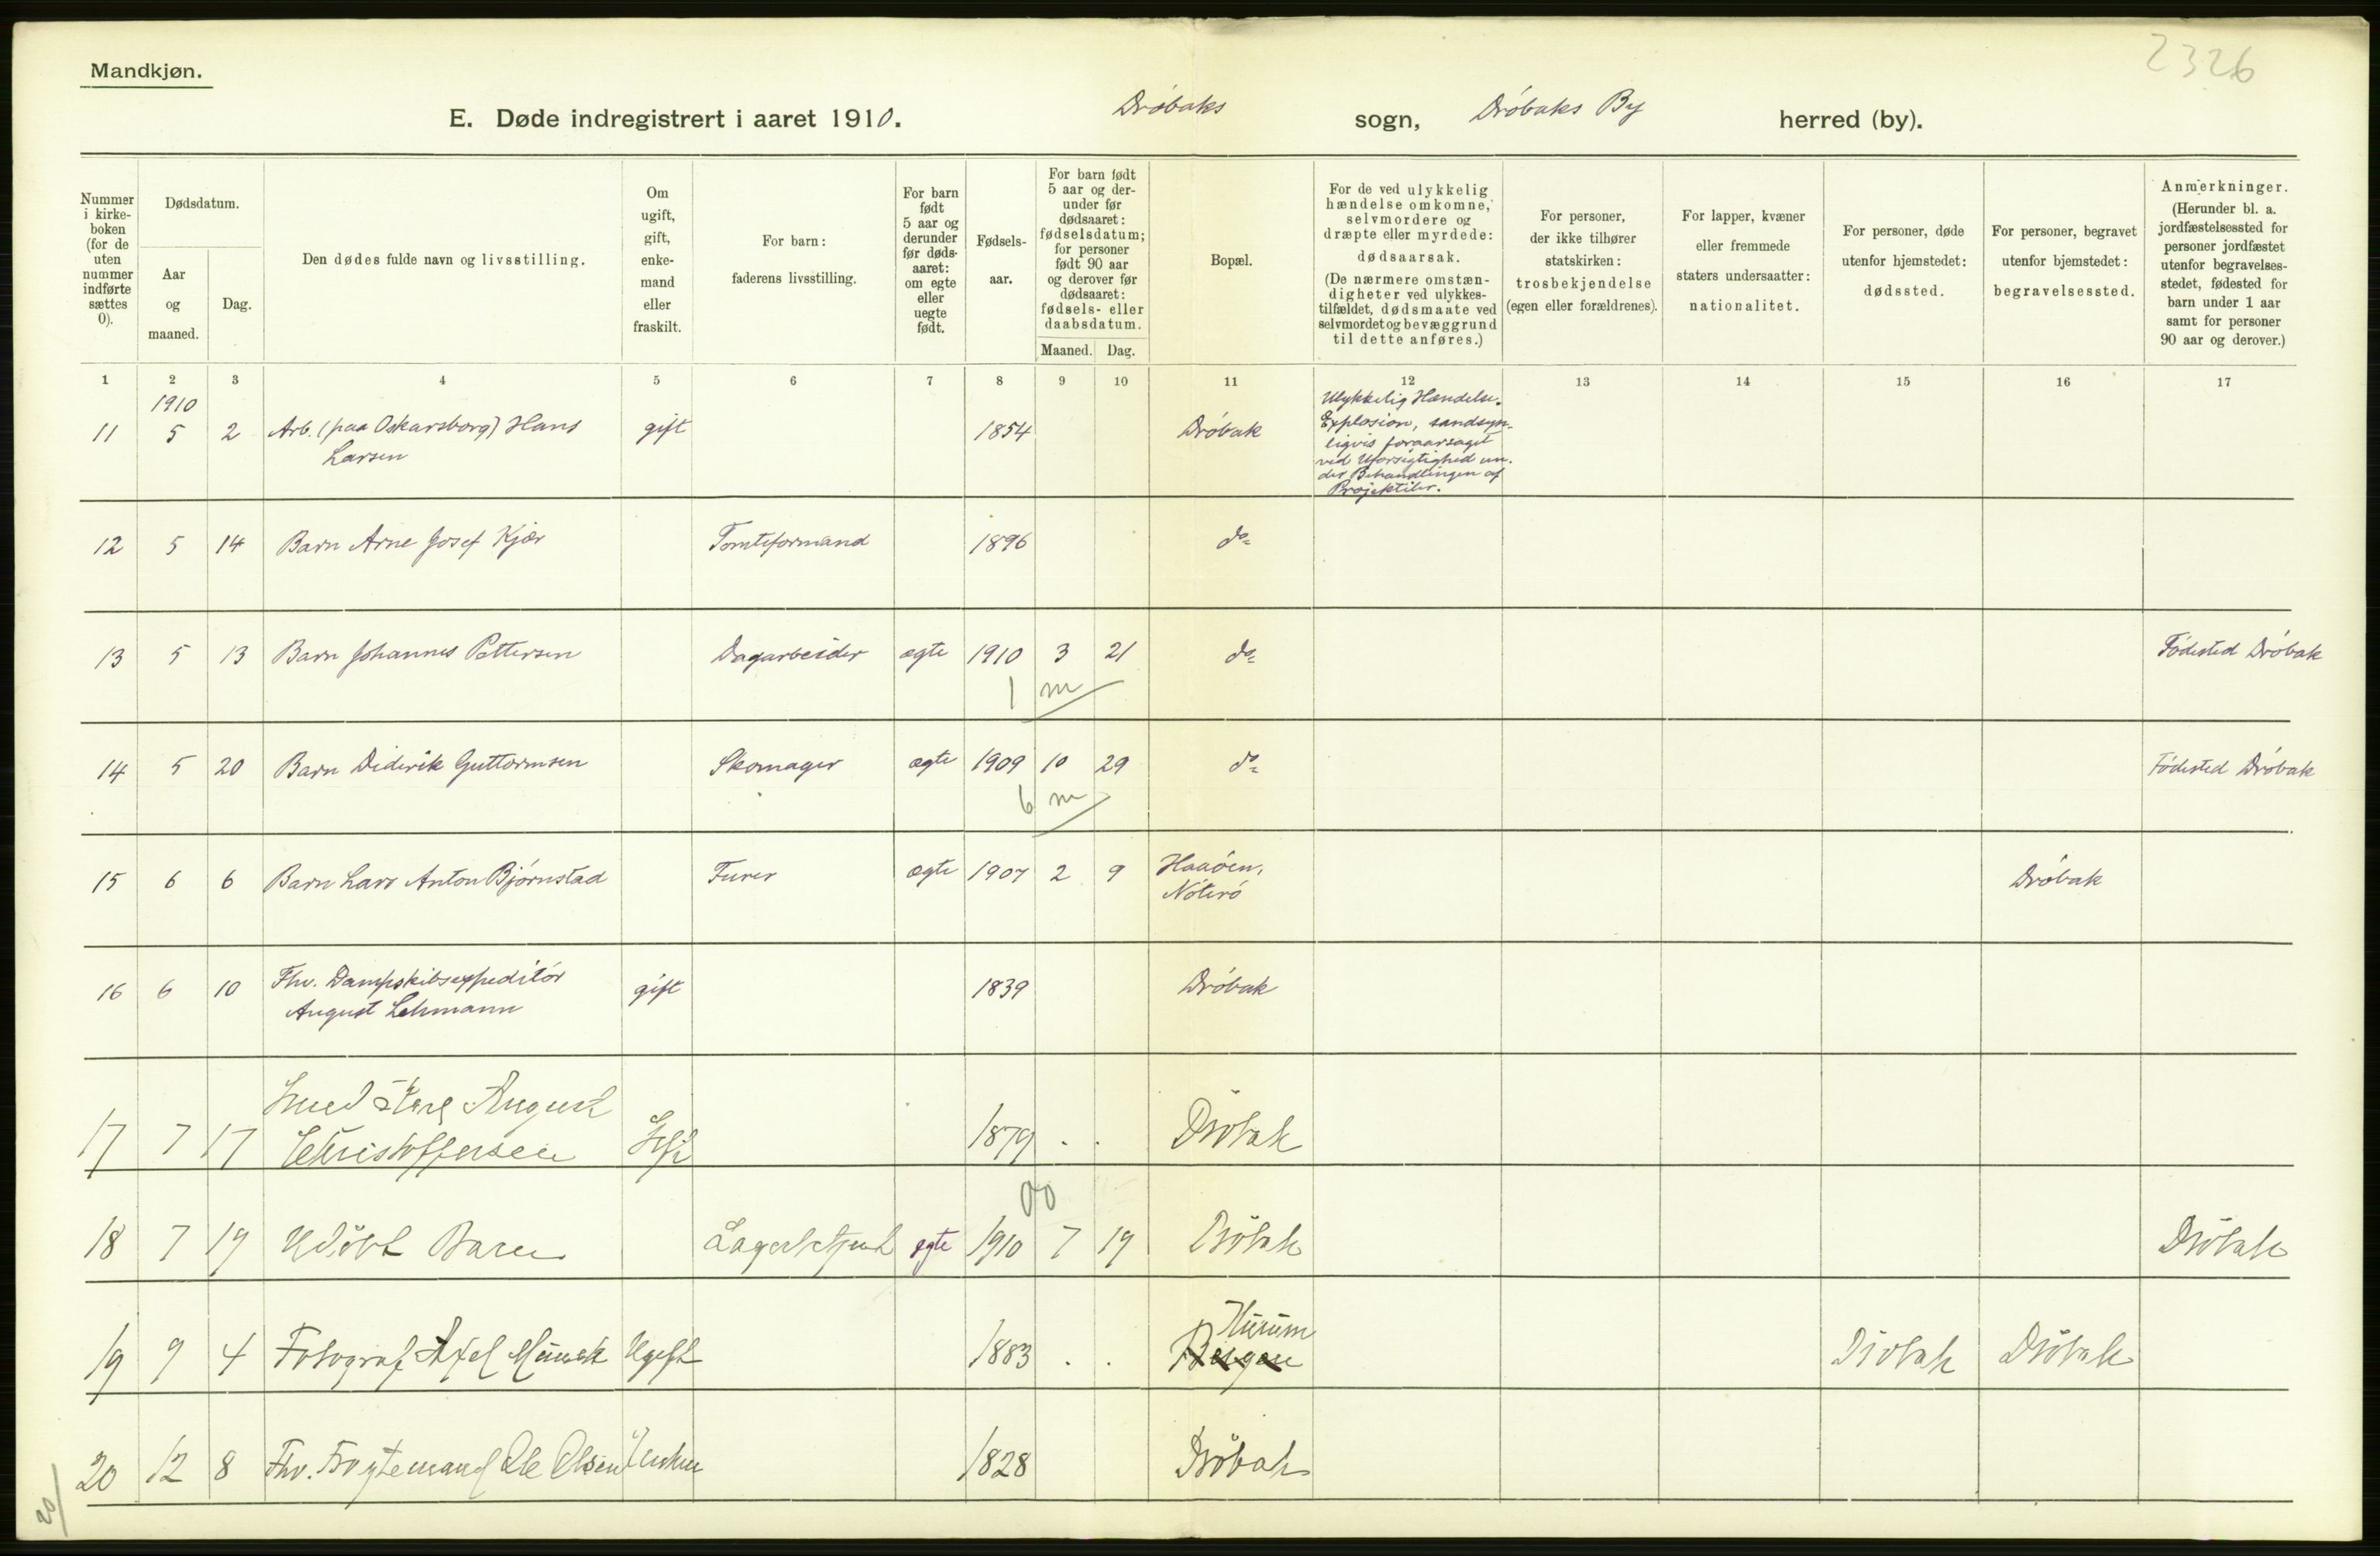 Mandkjøn.
2326
E. Døde indregistrert i aaret 1910. Drøbaks sogn, Drøbaks By herred (by).
Nummer i kirke- boken (for de uten nummer indførte sættes 0).
Dødsdatum.
Aar og maaned.
Dag.
Den dødes fulde navn og livsstilling.
Om ugift, gift, enke- mand eller fraskilt.
For barn: faderens livsstilling.
For barn født 5 aar og derunder før døds- aaret: om egte eller uegte født.
Fødsels- aar.
For barn født 5 aar og der- under før dødsaaret: fødselsdatum; for personer født 90 aar og derover før dødsaaret: fødsels- eller daabsdatum.
Maaned. Dag.
Bopæl.
For de ved ulykkelig hændelse omkomne, selvmordere og dræpte eller myrdede: dødsaarsak. (De nærmere omstæn- digheter ved ulykkes- tilfældet, dødsmaate ved selvmordet og bevæggrund til dette anføres.)
For personer, der ikke tilhører statskirken: trosbekjendelse (egen eller forældrenes).
For lapper, kvæner eller fremmede staters undersaatter: nationalitet.
For personer, døde utenfor hjemstedet: dødssted.
For personer, begravet utenfor hjemstedet: begravelsessted.
Anmerkninger. (Herunder bl. a. jordfæstelsessted for personer jordfæstet utenfor begravelses- stedet, fødested for barn under 1 aar samt for personer 90 aar og derover.)
1 2 3 4 5 6 7 8 9 10 11 12 13 14 15 16 17
1910
11 5 2 Arb. (paa Oskarsborg) Hans Larsen gift 1854 Drøbak Ulykkelig Hændelse. Explosion, sandsyn- ligvis foraarsaget ved Uforsigtighed un- der Behandlingen af Projektiler.
12 5 14 Barn Arne Josef Kjær Tomteformand 1896 do
13 5 13 Barn Johannes Pettersen Dagarbeider ægte 1910 3 21 do Fødested Drøbak
1 m
14 5 20 Barn Diderik Guttormsen Skomager ægte 1909 10 29 do Fødested Drøbak
6 m
15 6 6 Barn Lars Anton Bjørnstad Furer ægte 1907 2 9 Haaøen, Nøterø Drøbak
16 6 10 Fhv. Dampskibsexpeditør August Lehmann gift 1839 Drøbak
17 7 17 Smed Karl August Christoffersen Gift 1879 . . Drøbak
00
18 7 19 Udøbt Barn egte 1910 7 19 Drøbak Drøbak
19 9 4 Fotograf Axel Ugift 1883 . . Hurum Bergen Drøbak Drøbak
20 12 8 Fhv. Ole Olsen 1828 Drøbak
20